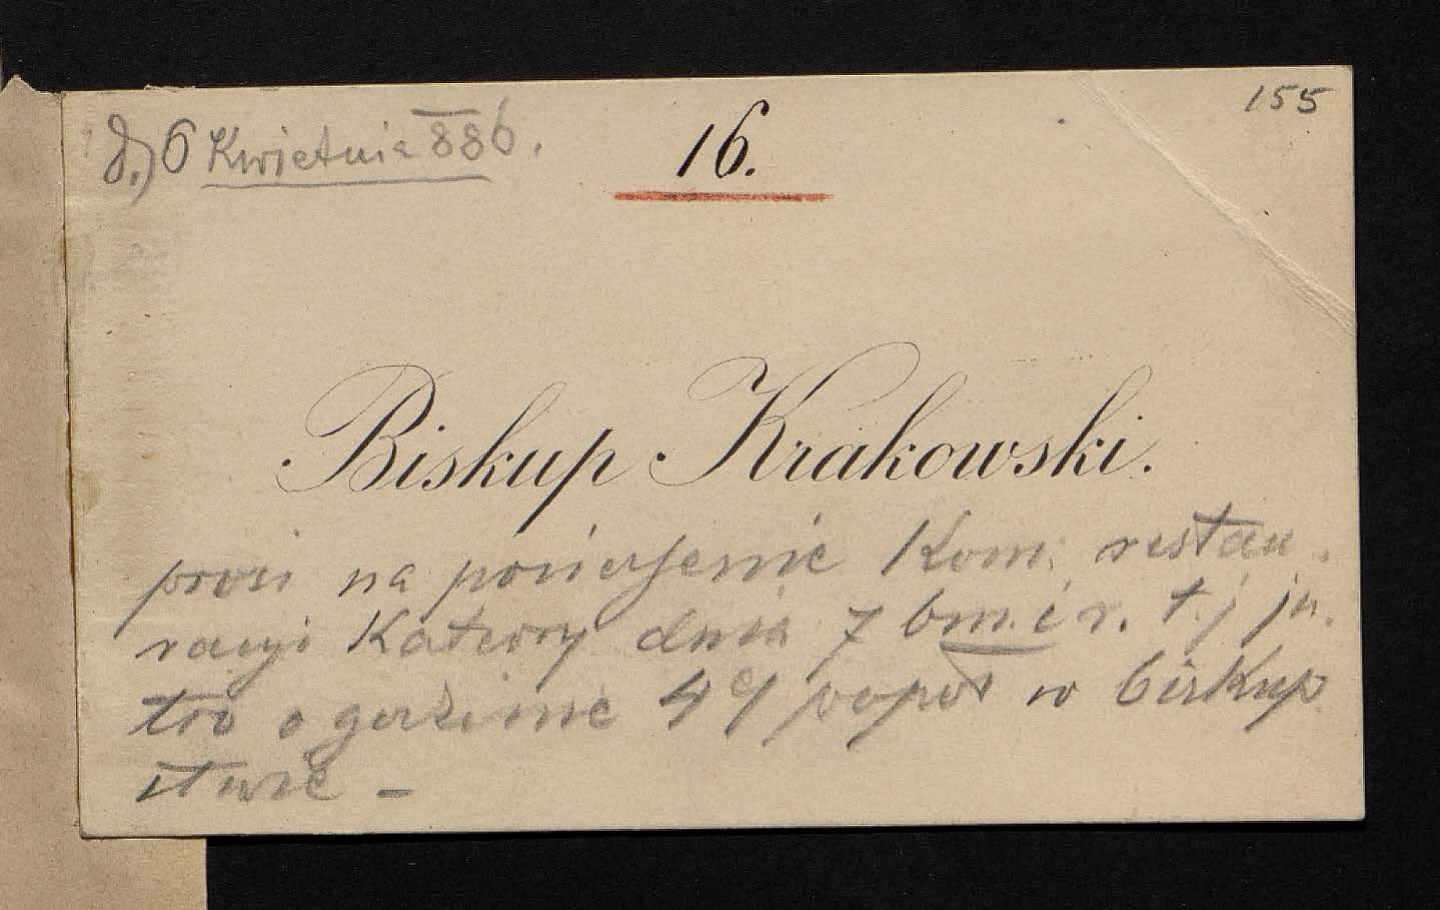 155
d.) 6 Kwietnia 886.
16.
Biskup Krakowski.
prosi na posiedzenie Kom. restau-
racyi Katedry dnia 7 bm. i r. t. j ju-
tro o godzinie 4ej popoł w biskup
stwie -